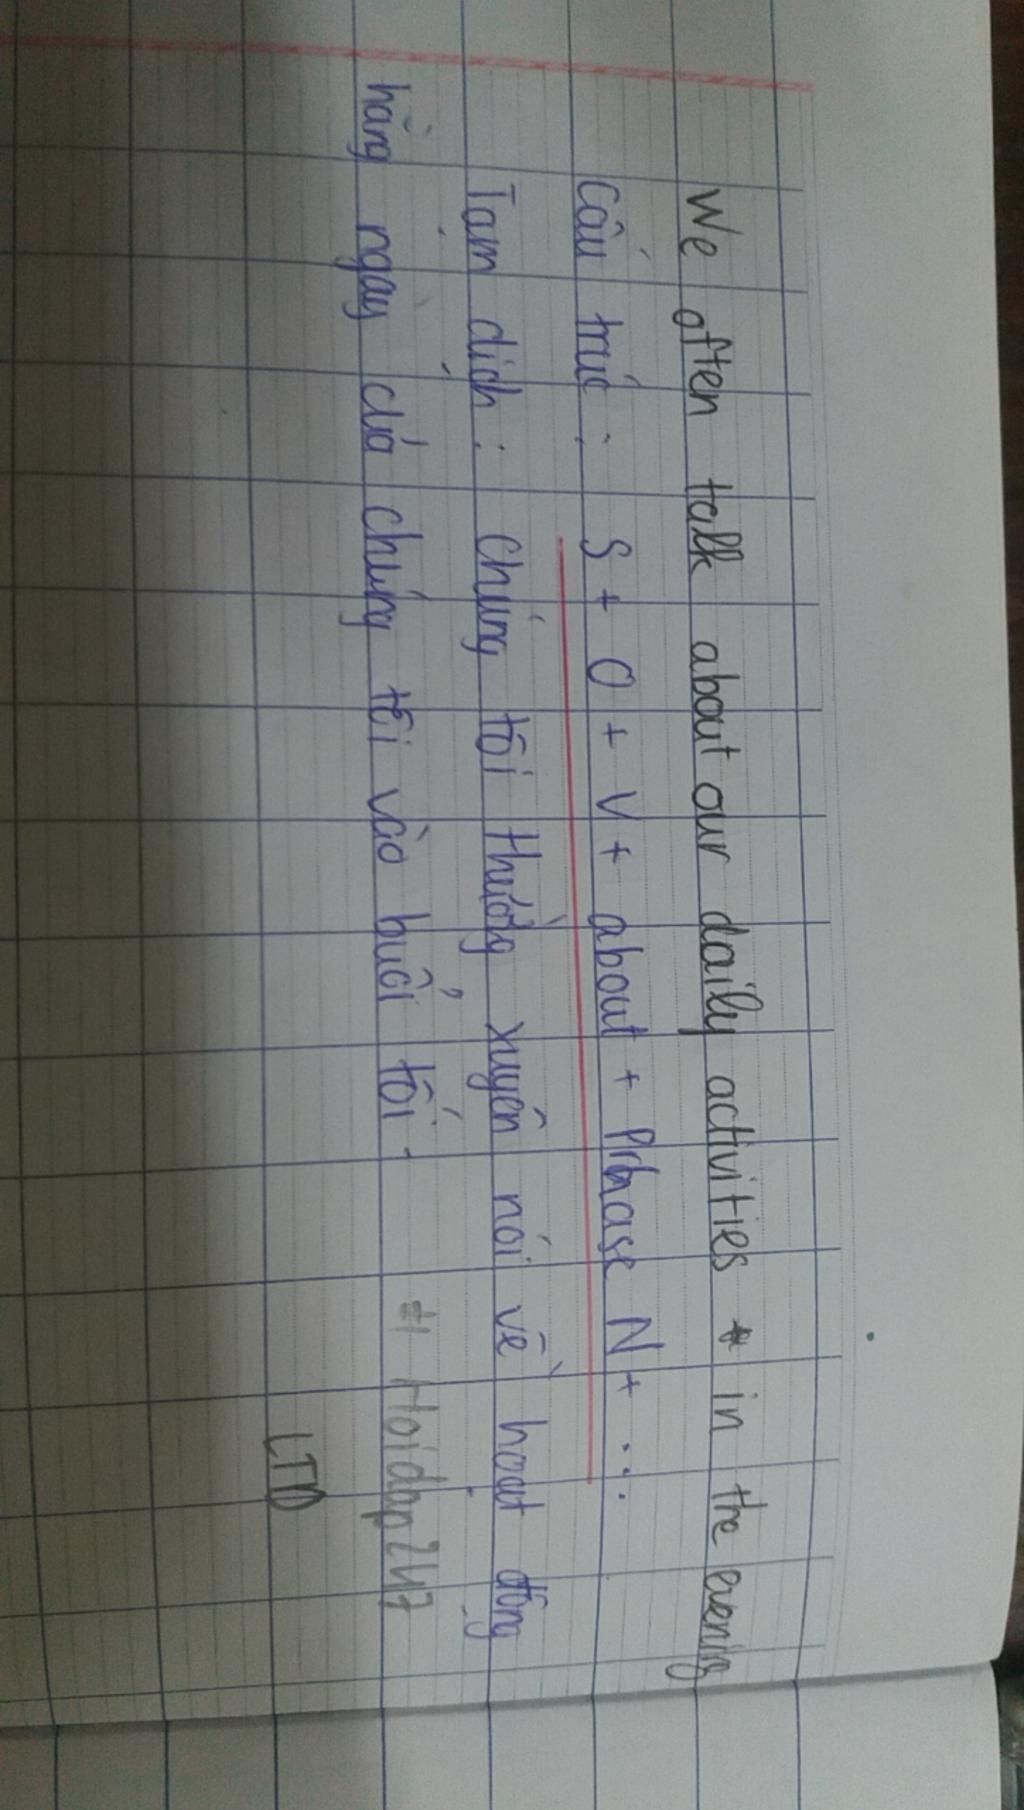 We often talk about our daily activities in the evening
Cấu trúc : S + O + V + about + Prhase N + ...
Tạm dịch : Chúng tôi thường xuyên nói về hoạt động
hằng ngày của chúng tôi vào buổi tối.
# Hoidap247
LTD